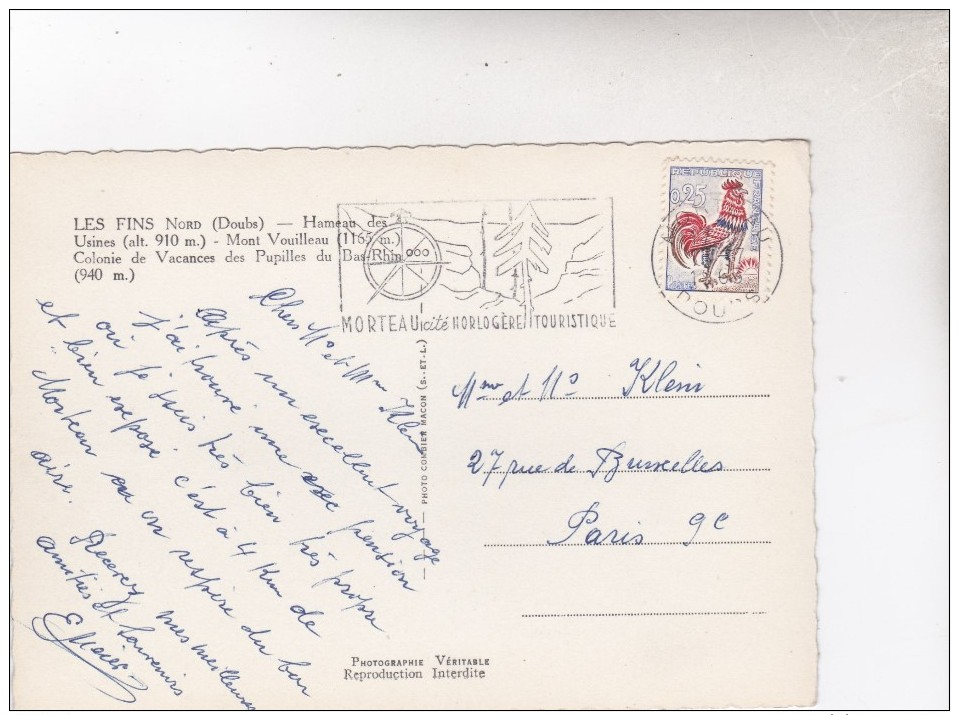 LES FINS NORD (Doubs) — Hameau des
Usines (alt. 910 m.) - Mont Vouilleau (1165 m.)
Colonie de Vacances des Pupilles du Bas-Rhin
(940 m.)
MORTEAU cité HORLOGÈRE TOURISTIQUE
REPUBLIQUE FRANCAISE
0,25
DOUBS
Chers Mr et Mme Klein
Après un execellent voyage
j'ai trouvé une pension
ou je suis très bien très propre
et bien exposé c'est à 4 Km de
Morteau ou on respire du bon
aire.
Recevez mes meilleures
amitiés et souvenirs
PHOTO COMBIER MACON (S.-ET-L.)
Mme et Mr Klein
27 rue de Bruxelles
Paris 9e
PHOTOGRAPHIE VÉRITABLE
Reproduction Interdite